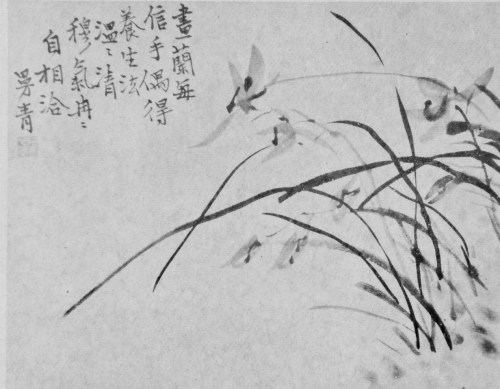 畫蘭每
信手偶得
養生法
溫〻清
穆氣冉〻
自相洽
昇青